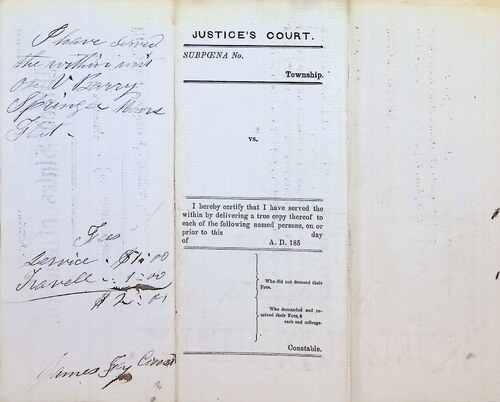 I have served
the within writ
on V Barry
Springer Moore
Feb.
Fees
Service - $1.00
Travell - 1.00
$2.00
James Fay Const
JUSTICE'S COURT.
SUBPŒNA No.
Township.
vs.
I hereby certify that I have served the
within by delivering a true copy thereof to
each of the following named persons, on or
prior to this day
of A. D. 185
Who did not demand their
Fees.
Who demanded and re-
ceived their Fees, $
each and mileage.
Constable.